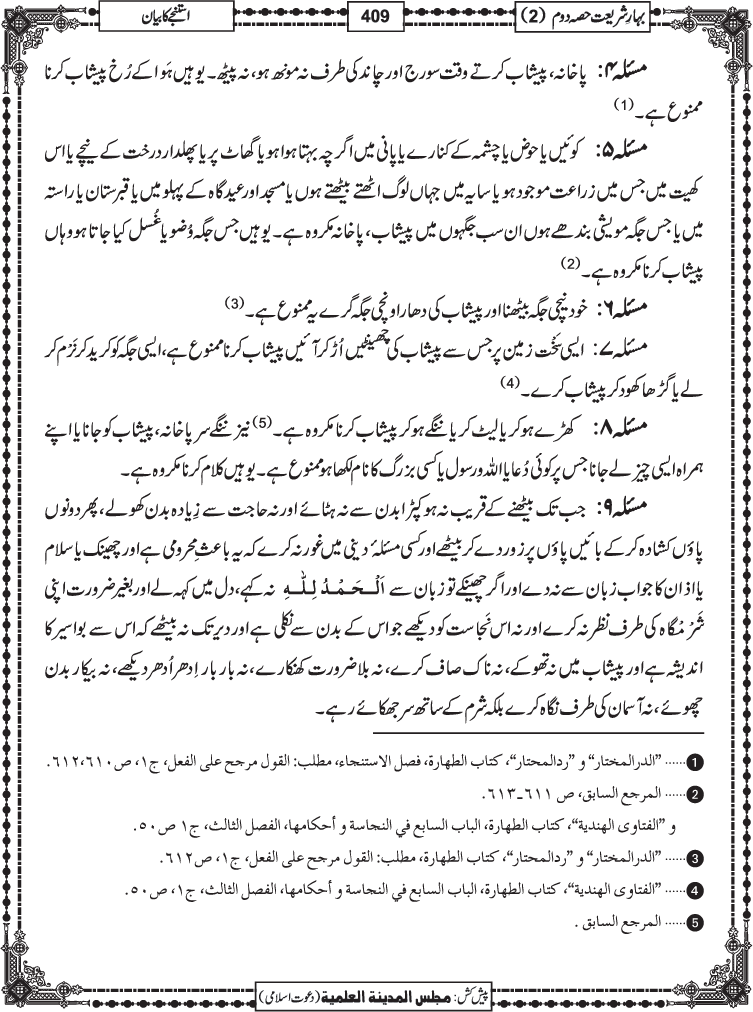 بہارِ شریعت حصہ دوم (2)
409
استنجے کا بیان
مسئلہ ۴: پاخانہ، پیشاب کرتے وقت سورج اور چاند کی طرف نہ مونھ ہو، نہ پیٹھ۔ یوہیں ہَوا کے رُخ پیشاب کرنا
ممنوع ہے۔ (1)
مسئلہ ۵: کوئیں یا حوض یا چشمہ کے کنارے یا پانی میں اگرچہ بہتا ہوا ہو یا گھاٹ پر یا پھلدار درخت کے نیچے یا اس
کھیت میں جس میں زراعت موجود ہو یا سایہ میں جہاں لوگ اٹھتے بیٹھتے ہوں یا مسجد اور عیدگاہ کے پہلو میں یا قبرستان یا راستہ
میں یا جس جگہ مویشی بندھے ہوں ان سب جگہوں میں پیشاب، پاخانہ مکروہ ہے۔ یوہیں جس جگہ وُضو یا غُسل کیا جاتا ہو وہاں
پیشاب کرنا مکروہ ہے۔ (2)
مسئلہ ۶: خود نیچی جگہ بیٹھنا اور پیشاب کی دھار اونچی جگہ گرے یہ ممنوع ہے۔ (3)
مسئلہ ۷: ایسی سَخْت زمین پر جس سے پیشاب کی چھینٹیں اُڑ کر آئیں پیشاب کرنا ممنوع ہے، ایسی جگہ کو کرید کر نَرْم کر
لے یا گڑھا کھود کر پیشاب کرے۔ (4)
مسئلہ ۸: کھڑے ہو کر یا لیٹ کر یا ننگے ہو کر پیشاب کرنا مکروہ ہے۔ (5) نیز ننگے سر پاخانہ، پیشاب کو جانا یا اپنے
ہمراہ ایسی چیز لے جانا جس پر کوئی دُعا یا اللہ و رسول یا کسی بزرگ کا نام لکھا ہو ممنوع ہے۔ یوہیں کلام کرنا مکروہ ہے۔
مسئلہ ۹: جب تک بیٹھنے کے قریب نہ ہو کپڑا بدن سے نہ ہٹائے اور نہ حاجت سے زیادہ بدن کھولے، پھر دونوں
پاؤں کشادہ کر کے بائیں پاؤں پر زور دے کر بیٹھے اور کسی مسئلۂ دینی میں غور نہ کرے کہ یہ باعثِ محرومی ہے اور چھینک یا سلام
یا اذان کا جواب زبان سے نہ دے اور اگر چھینکے تو زبان سے اَلْحَمْدُ لِلّٰهِ نہ کہے، دل میں کہہ لے اور بغیر ضرورت اپنی
شَرْمگاہ کی طرف نظر نہ کرے اور نہ اس نَجاست کو دیکھے جو اس کے بدن سے نکلی ہے اور دیر تک نہ بیٹھے کہ اس سے بواسیر کا
اندیشہ ہے اور پیشاب میں نہ تھوکے، نہ ناک صاف کرے، نہ بلا ضرورت کھنکارے، نہ بار بار اِدھر اُدھر دیکھے، نہ بیکار بدن
چھوئے، نہ آسمان کی طرف نگاہ کرے بلکہ شرم کے ساتھ سر جھکائے رہے۔
1 ...... "الدرالمختار" و "ردالمحتار"، کتاب الطهارة، فصل الاستنجاء، مطلب: القول مرجح علی الفعل، ج١، ص٦١٠،٦١٢.
2 ...... المرجع السابق، ص ٦١١-٦١٣.
و "الفتاوی الهندية"، کتاب الطهارة، الباب السابع في النجاسة و أحکامها، الفصل الثالث، ج١ ص٥٠.
3 ...... "الدرالمختار" و "ردالمحتار"، کتاب الطهارة، مطلب: القول مرجح علی الفعل، ج١، ص٦١٢.
4 ...... "الفتاوی الهندية"، کتاب الطهارة، الباب السابع في النجاسة و أحکامها، الفصل الثالث، ج١، ص٥٠.
5 ...... المرجع السابق .
پیش کش: مجلس المدينة العلمية (دعوتِ اسلامی)